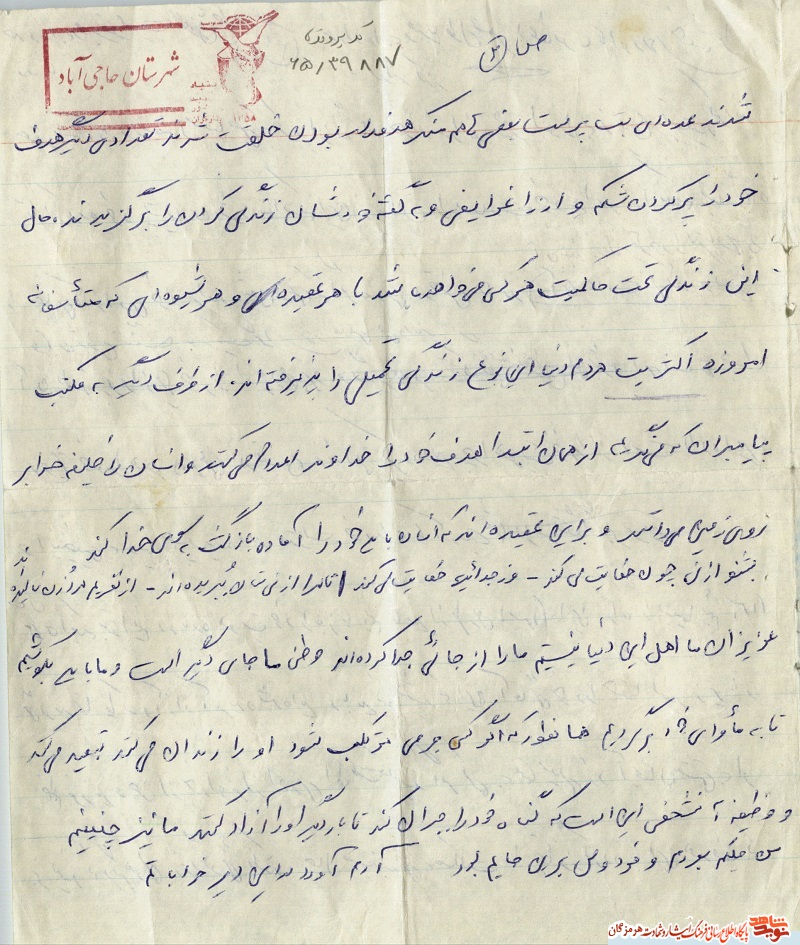 شهرستان حاجی آباد
بنیاد
۱۳۵۸
کد پرونده
۶۵/۳۹۸۸۷
ص
شدند عده‌ای بت پرست بعضی هم منکر هدفدار بودن خلقت شدند تعدادی دیگر هدف
خود را پر کردن شکم و ارزا غرایض و به گفته خودشان زندگی کردن را برگزیدند، حال
این زندگی تحت حاکمیت هر کس می‌خواهد باشد با هر عقیده‌ای و هر شیوه‌ای که متأسفانه
امروزه اکثریت مردم دنیا این نوع زندگی تحمیلی را پذیرفته‌اند. از طرف دیگر به مکتب
پیامبران که می‌نگریم از همان ابتدا هدف خود را خداوند اعلام می‌کنند و انسان را خلیفه خدا بر
روی زمین می‌دانند و بر این عقیده‌اند که انسان باید خود را آماده بازگشت به سوی خدا کند
بشنو از نی چون حکایت می‌کند - وز جدائیها حکایت می‌کند / تا مرا از نیستان ببریده‌اند - از نفیرم مرد و زن نالیده‌اند
عزیزان ما اهل این دنیا نیستیم ما را از جائی جدا کرده‌اند وطن ما جای دیگر است و ما باید بکوشیم
تا به مأوای خود برگردیم همانطور که اگر کسی جرمی مرتکب شود او را زندان می‌کنند تبعید می‌کنند
و وظیفه آن شخص این است که گناه خود را جبران کند تا بار دیگر او را آزاد کنند ما نیز چنینیم
من ملک بودم و فردوس برین جایم بود آدم آورد در این دیر خراب آبادم
نوید شاهد
پایگاه اطلاع رسانی فرهنگ ایثار و شهادت هرمزگان